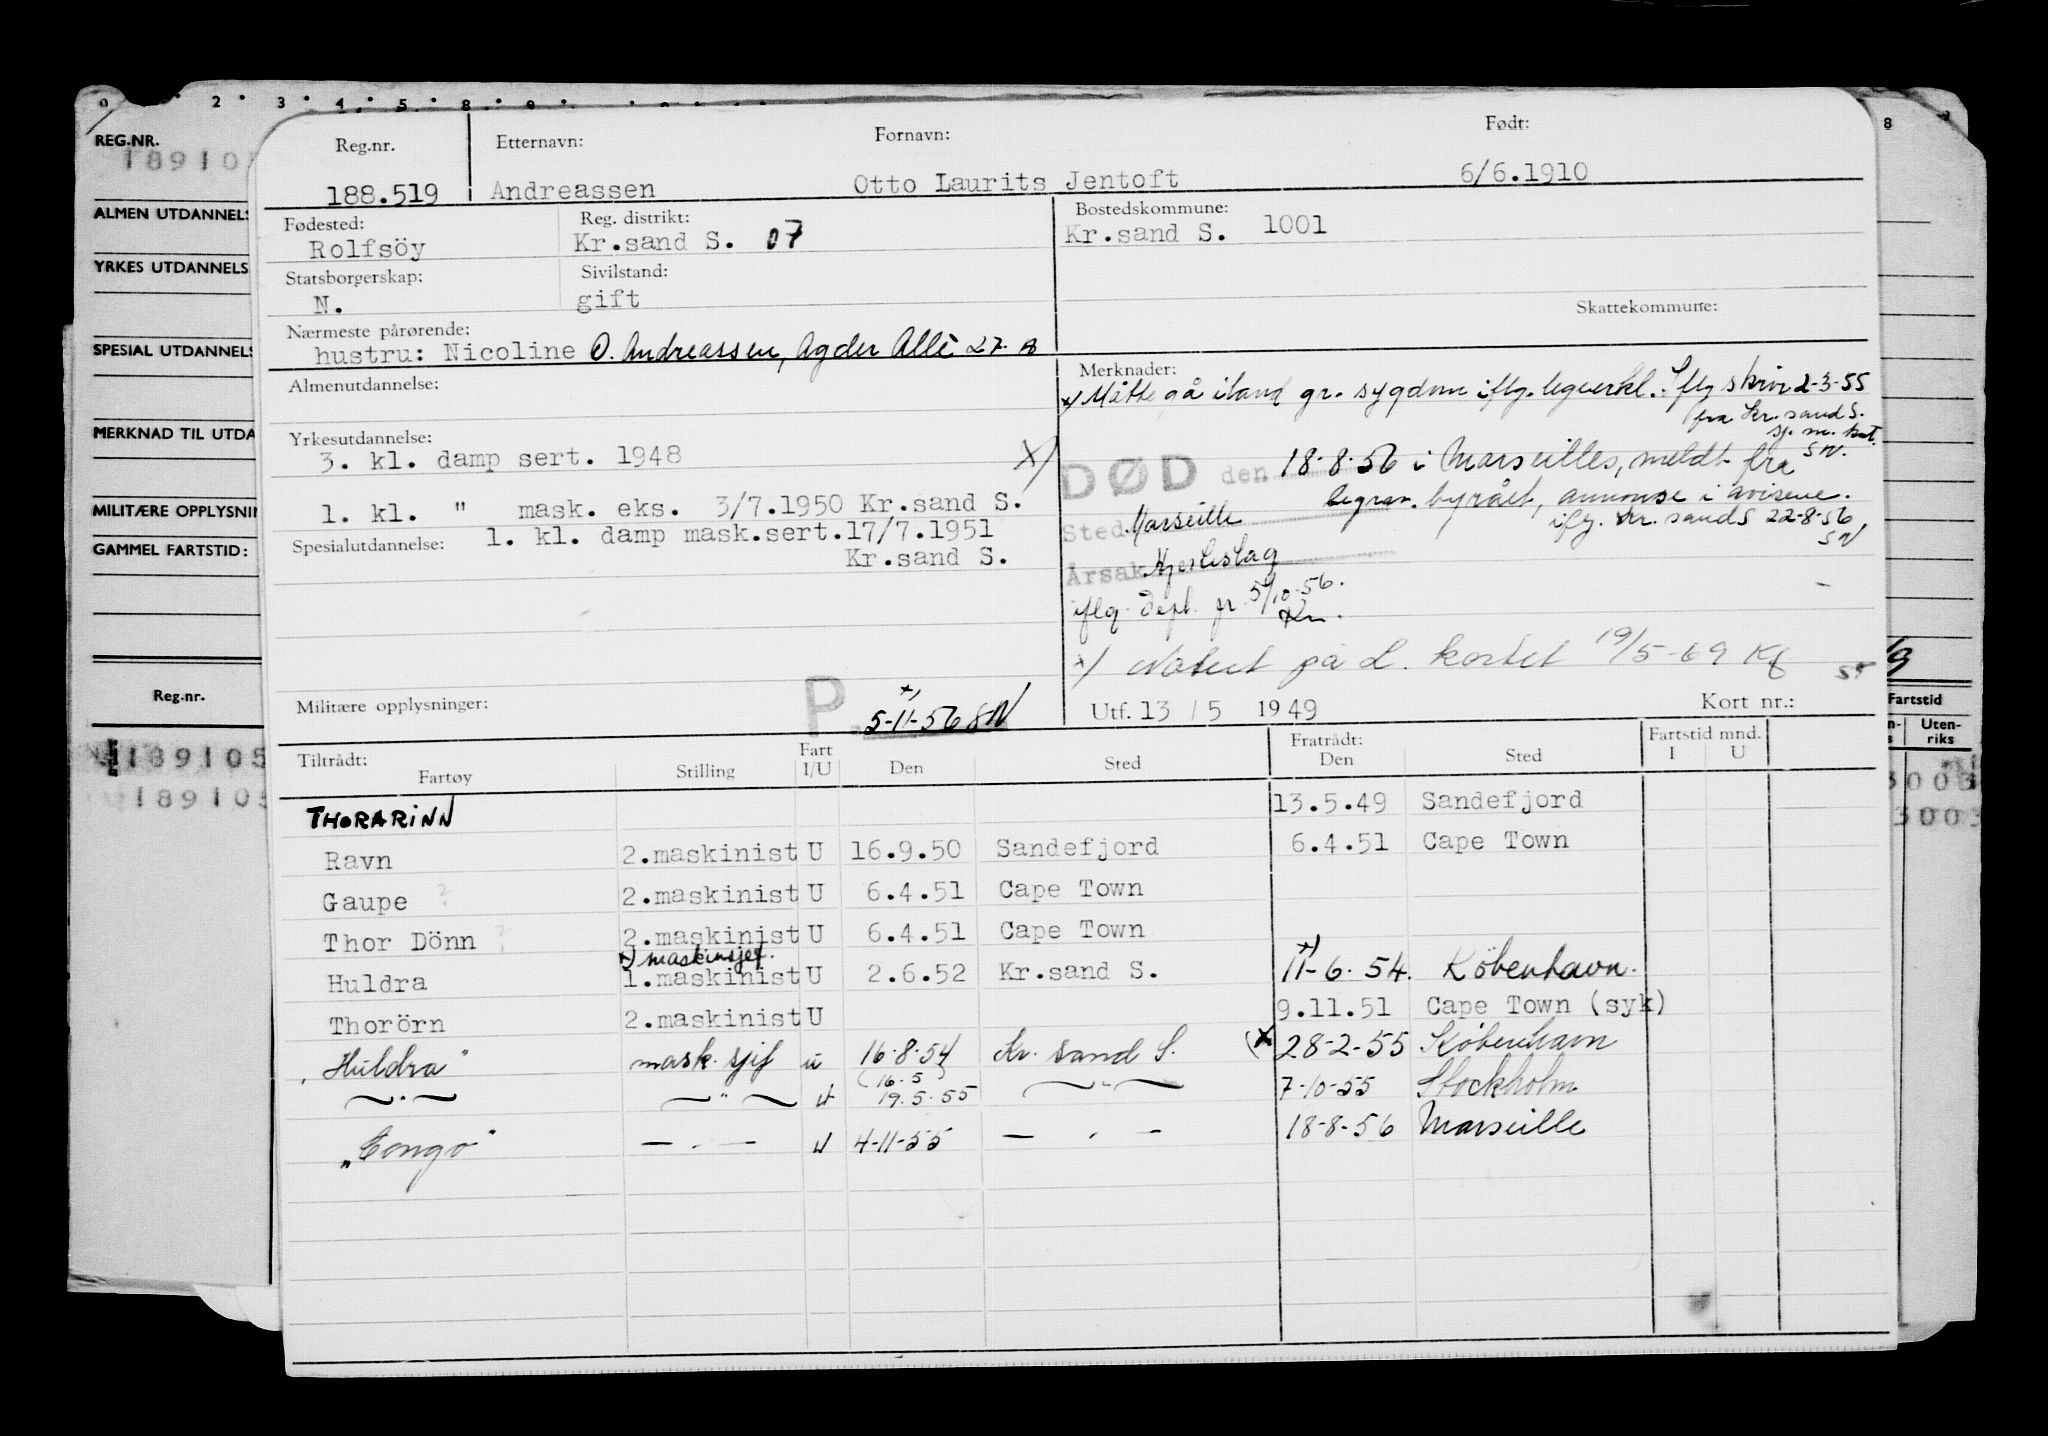 0 2 3 4 5 8 9 8
REG.NR.
189105
ALMEN UTDANNELS
YRKES UTDANNELS
SPESIAL UTDANNELS
MERKNAD TIL UTDA
MILITÆRE OPPLYSNIN
GAMMEL FARTSTID:
Reg.nr.
189105
189105
Fartstid
Uten-
riks
3003
3003
Reg.nr. Etternavn: Fornavn: Født:
188.519 Andreassen Otto Laurits Jentoft 6/6.1910
Fødested: Reg. distrikt: Bostedskommune:
Rolfsöy Kr.sand S. 07 Kr.sand S. 1001
Statsborgerskap: Sivilstand:
N. gift
Skattekommune:
Nærmeste pårørende:
hustru: Nicoline O. Andreassen, Agder Allè 27. B
Almenutdannelse:
Merknader:
x/ Måtte gå iland gr. sygdom iflg. legeerkl. Iflg skriv 2-3-55
fra Kr. sand S.
sj. m. knt.
SN.
Yrkesutdannelse:
3. kl. damp sert. 1948 X/
1. kl. " mask. eks. 3/7.1950 Kr.sand S.
Spesialutdannelse: 1. kl. damp mask.sert.17/7.1951
Kr.sand S.
DØD den 18-8-56 i Marseilles, meldt fra
begrav. byrået, annonse i avisene.
iflg. Kr. sand S 22-8-56,
SN
Sted Marseille
Årsak Hjerteslag
iflg. Dept. gr. 5/10-56.
Kn.
x/ Notert på L. kortet 19/5-69 Kf
55
Militære opplysninger: P. x/ 5-11-56 SN
Utf. 13 / 5 1949 Kort nr.:
Tiltrådt: Fratrådt: Fartstid mnd.
Fartøy Stilling Fart I/U Den Sted Den Sted I U
THORARINN 13.5.49 Sandefjord
Ravn 2.maskinist U 16.9.50 Sandefjord 6.4.51 Cape Town
Gaupe ? 2.maskinist U 6.4.51 Cape Town
Thor Dönn ? 2.maskinist U 6.4.51 Cape Town
x) maskinsjef.
Huldra 1.maskinist U 2.6.52 Kr.sand S. x) 11-6-54. Köbenhavn.
Thorörn 2.maskinist U 9.11.51 Cape Town (syk)
"Huldra" mask. sjef u 16-8-54 Kr. sand S. (x 28-2-55 København
(16.5)
— " — — " — u 19.5.55 — " — 7-10-55 Stockholm
"Congo" — " — u 4-11-55 — " — 18-8-56 Marseille